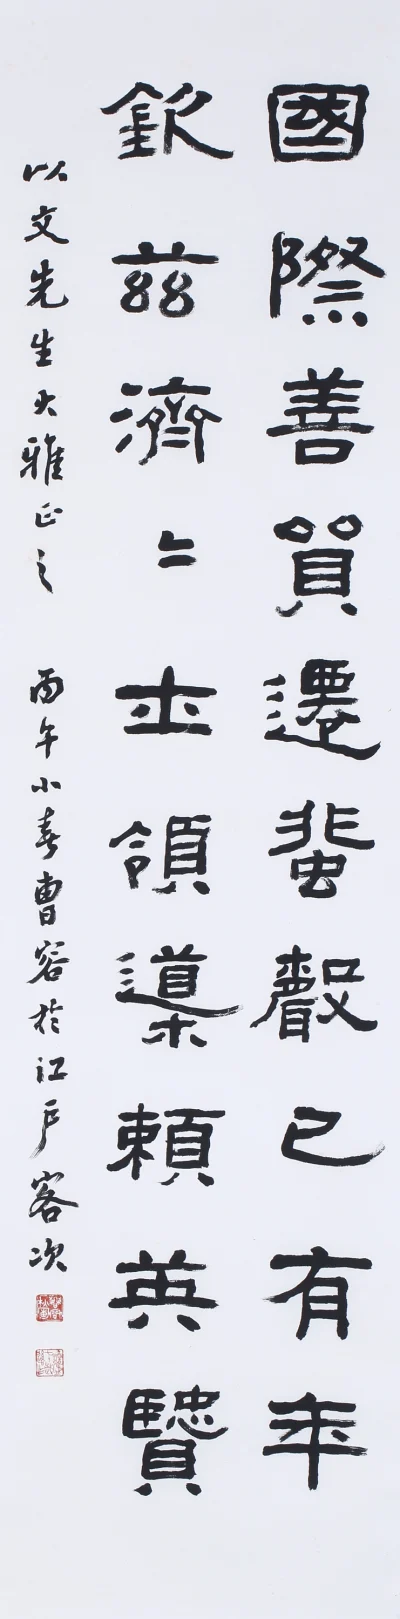 國際善貿遷蜚聲已有年
欽茲濟〻士領導賴英贒
以文先生大雅正之 丙午小春曹容於江戶客次